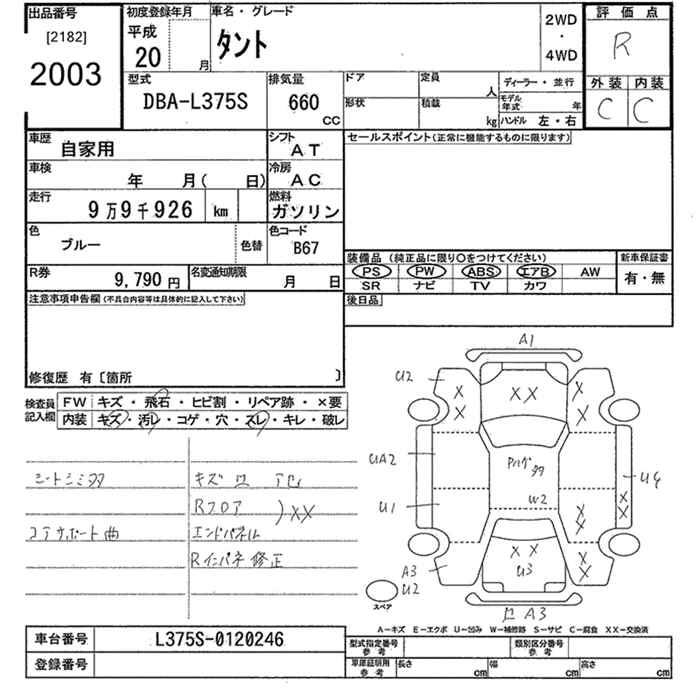 出品番号
[2182]
2003
初度登録年月
平成
20 月
車名・グレード
タント
2WD
・
4WD
評価点
R
外装 内装
C C
型式
DBA-L375S
排気量
660
CC
ドア
形状
定員
人
積載
kg
ディーラー・並行
モデル年式 年
ハンドル 左・右
車歴
自家用
シフト
AT
車検
年 月( 日)
冷房
AC
走行
9万9千926 km
燃料
ガソリン
色
ブルー
色替
色コード
B67
R券
9,790 円
名変通知期限
月 日
セールスポイント(正常に機能するものに限ります)
装備品 (純正品に限り○をつけてください)
PS PW ABS エアB AW
SR ナビ TV カワ
新車保証書
有・無
後日品
注意事項申告欄(不具合内容等は具体的に記入して下さい)
修復歴 有〔箇所 〕
検査員記入欄
FW キズ・飛石・ヒビ割・リペア跡・×要
内装 キズ・汚レ・コゲ・穴・スレ・キレ・破レ
シートシミ
コアサポート曲
キズ
Rフロア
エンドパネル
)XX
Rインパネ修正
A1
U2
X X
X X
X X
UA2
U1
W2
U4
X X
X X
X X
X X
U3
A3
U2
スペア
A3
A-キズ E-エクボ U-凹み W-補修跡 S-サビ C-腐食 XX-交換済
車台番号
L375S-0120246
登録番号
型式指定番号
参考
類別区分番号
参考
車庫証明用
参考
長さ cm
幅 cm
高さ cm